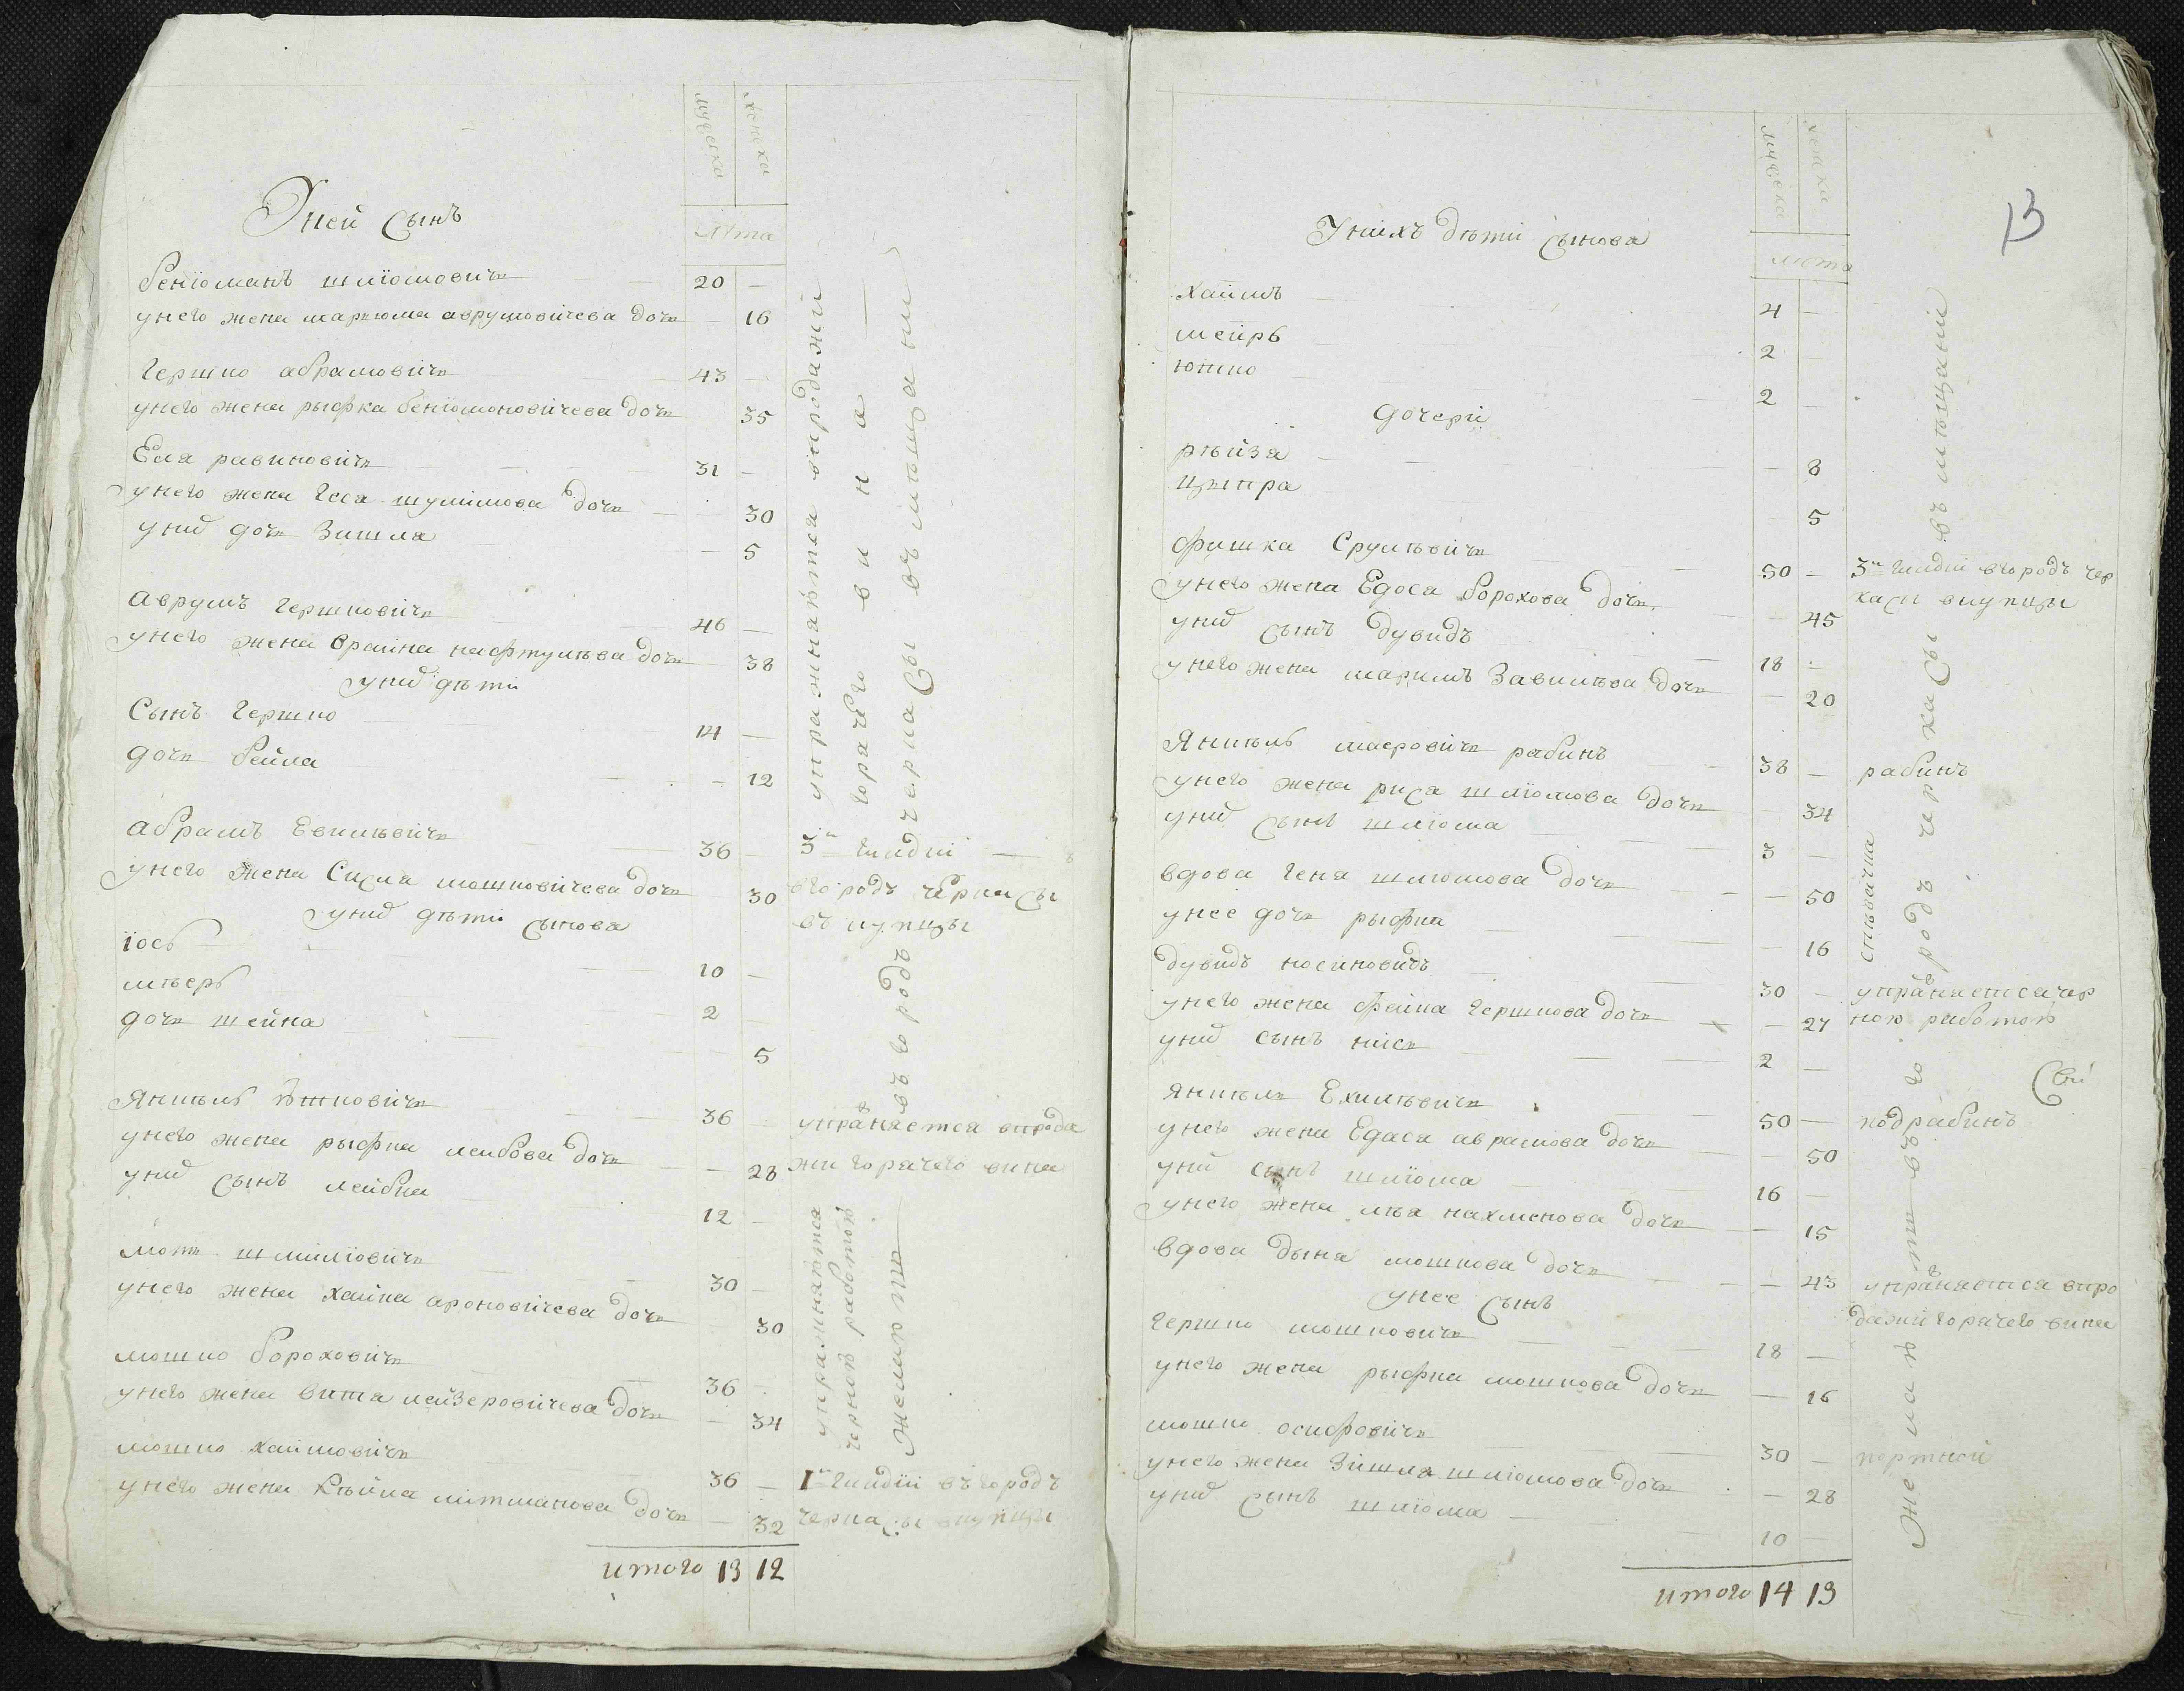 мужеска
женска
Уней сынъ
лѣта
бенiоманъ шлiомовичъ 20 —
унего жена марiома аврумовичева дочь — 16
гершко абрамовичъ 43 —
унего жена рыфка бенiомоновичева дочь 35
Еля равиновичъ 31 —
унего жена геся шулiмова дочь — 30
уних дочь Зишля — 5
аврумъ гершковичъ 46 —
унего жена браина нафтулѣва дочь — 38
уних дѣти
Сынъ гершко 14 —
дочь бейла — 12
абрамъ Евилѣвичъ 36 —
унего жена Сисля мошковичева дочь 30
уних дѣти сынова
iось 10 —
мѣеръ 2 —
дочь шейна — 5
Янкѣль 36
унего жена рыфка леибова дочь — 28
уних сынъ лейбка 12 —
мотъ шмиловичъ 30 —
унего жена хаика ароновичева дочь 30
мошко бороховичъ 36
унего жена вита лейзеровичева дочь — 34
мошко хаимовичъ 36 —
унего жена хѣйка литманова дочь — 32
итого 13 12
упражняются впродажи
горячего вина —
3й гилдiи —
вгородъ черкасы
въ купцы
упражняется впрода
жи горячего вина
упражняются
черною работою
Желают въ городъ черкасы въ мѣщани
1й гилдiи въгородъ
черкасы вкупцы
13
мужеска
женска
Унихъ дѣти сынова
лета
хаимъ 4 —
меиръ 2 —
юшко 2 —
дочери
рѣйза — 8
ципра 5
фишка Срулѣвичъ 50 —
унего жена Едося борохова дочь — 45
уних сынъ дувидъ 18
унего жена маримъ Завилѣва дочь — 20
Янкѣль маеровичъ рабинъ 38 —
унего жена рися шлiомова дочь — 34
уних сынъ шлiома 3 —
вдова геня шлiомова дочь — 50
унее дочь рыфка — 16
дувидъ носиновичъ 30 —
унего жена фейга гершкова дочь — 27
уних сынъ нись 2 —
Янкѣль Ехилѣвичъ 50 —
унего жена Едася аврамова дочь 50
уних сынъ шлiома 16 —
унего жена лѣя нахменова дочь — 15
вдова дыня мошкова дочь — 43
унее сынъ
гершко мошковичъ 18 —
унего жена рыфка мошкова дочь — 16
мошко осифовичъ 30 —
унего жена Зишля шлiомова дочь — 28
уних сынъ шлiома 10 —
итого 14 13
3й гилдiи вгородъ чер
касы вкупцы
рабинъ
упражняется чер
ною работою
подрабинъ
упражняется впро
дажи горячего вина
портной
Желают въ городъ черкасы въ мѣщани